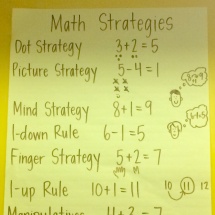 Math Strategies
Dot Strategy 3+2=5
Picture Strategy 5-4=1
Mind Strategy 8+1=9
1-down Rule 6-1=5
Finger Strategy 5+2=7
1-up Rule 10+1=11 10 11 12
Manipulatives 4+3=7